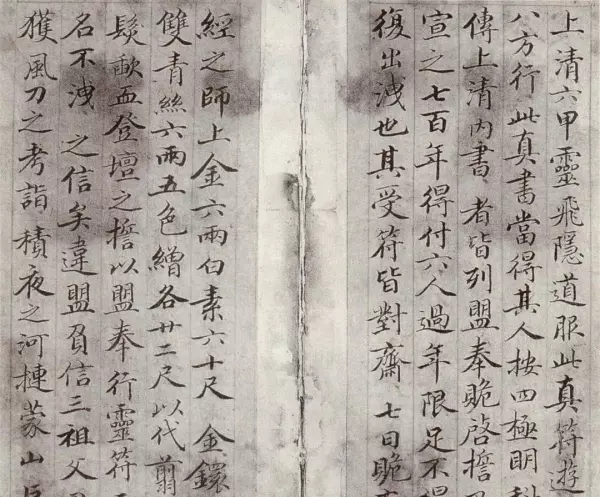 上清六甲靈飛隱道服此真符遊
八方行此真書當得其人按四極明科
傳上清內書者皆列盟奉贍啓擔乃
宣之七百年得付六人過年限足不得
復出洩也其受符皆對齋七日贍
經之師上金六兩白素六十尺金鐶
雙青絲六兩五色繒各廿二尺以代翦
髮歃血登壇之擔以盟奉行靈符
名不洩之信矣違盟負信三祖父
獲風刀之考詣積夜之河摙蒙山巨